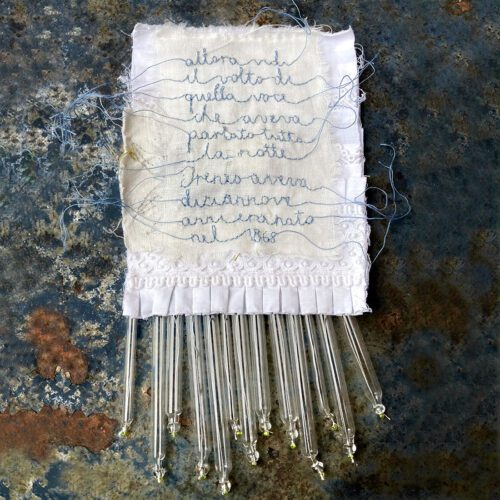 allora vidi
il volto di
quella voce
che aveva
parlato tutta
la notte
Irenio aveva
diciannove
anni era nato
nel 1868